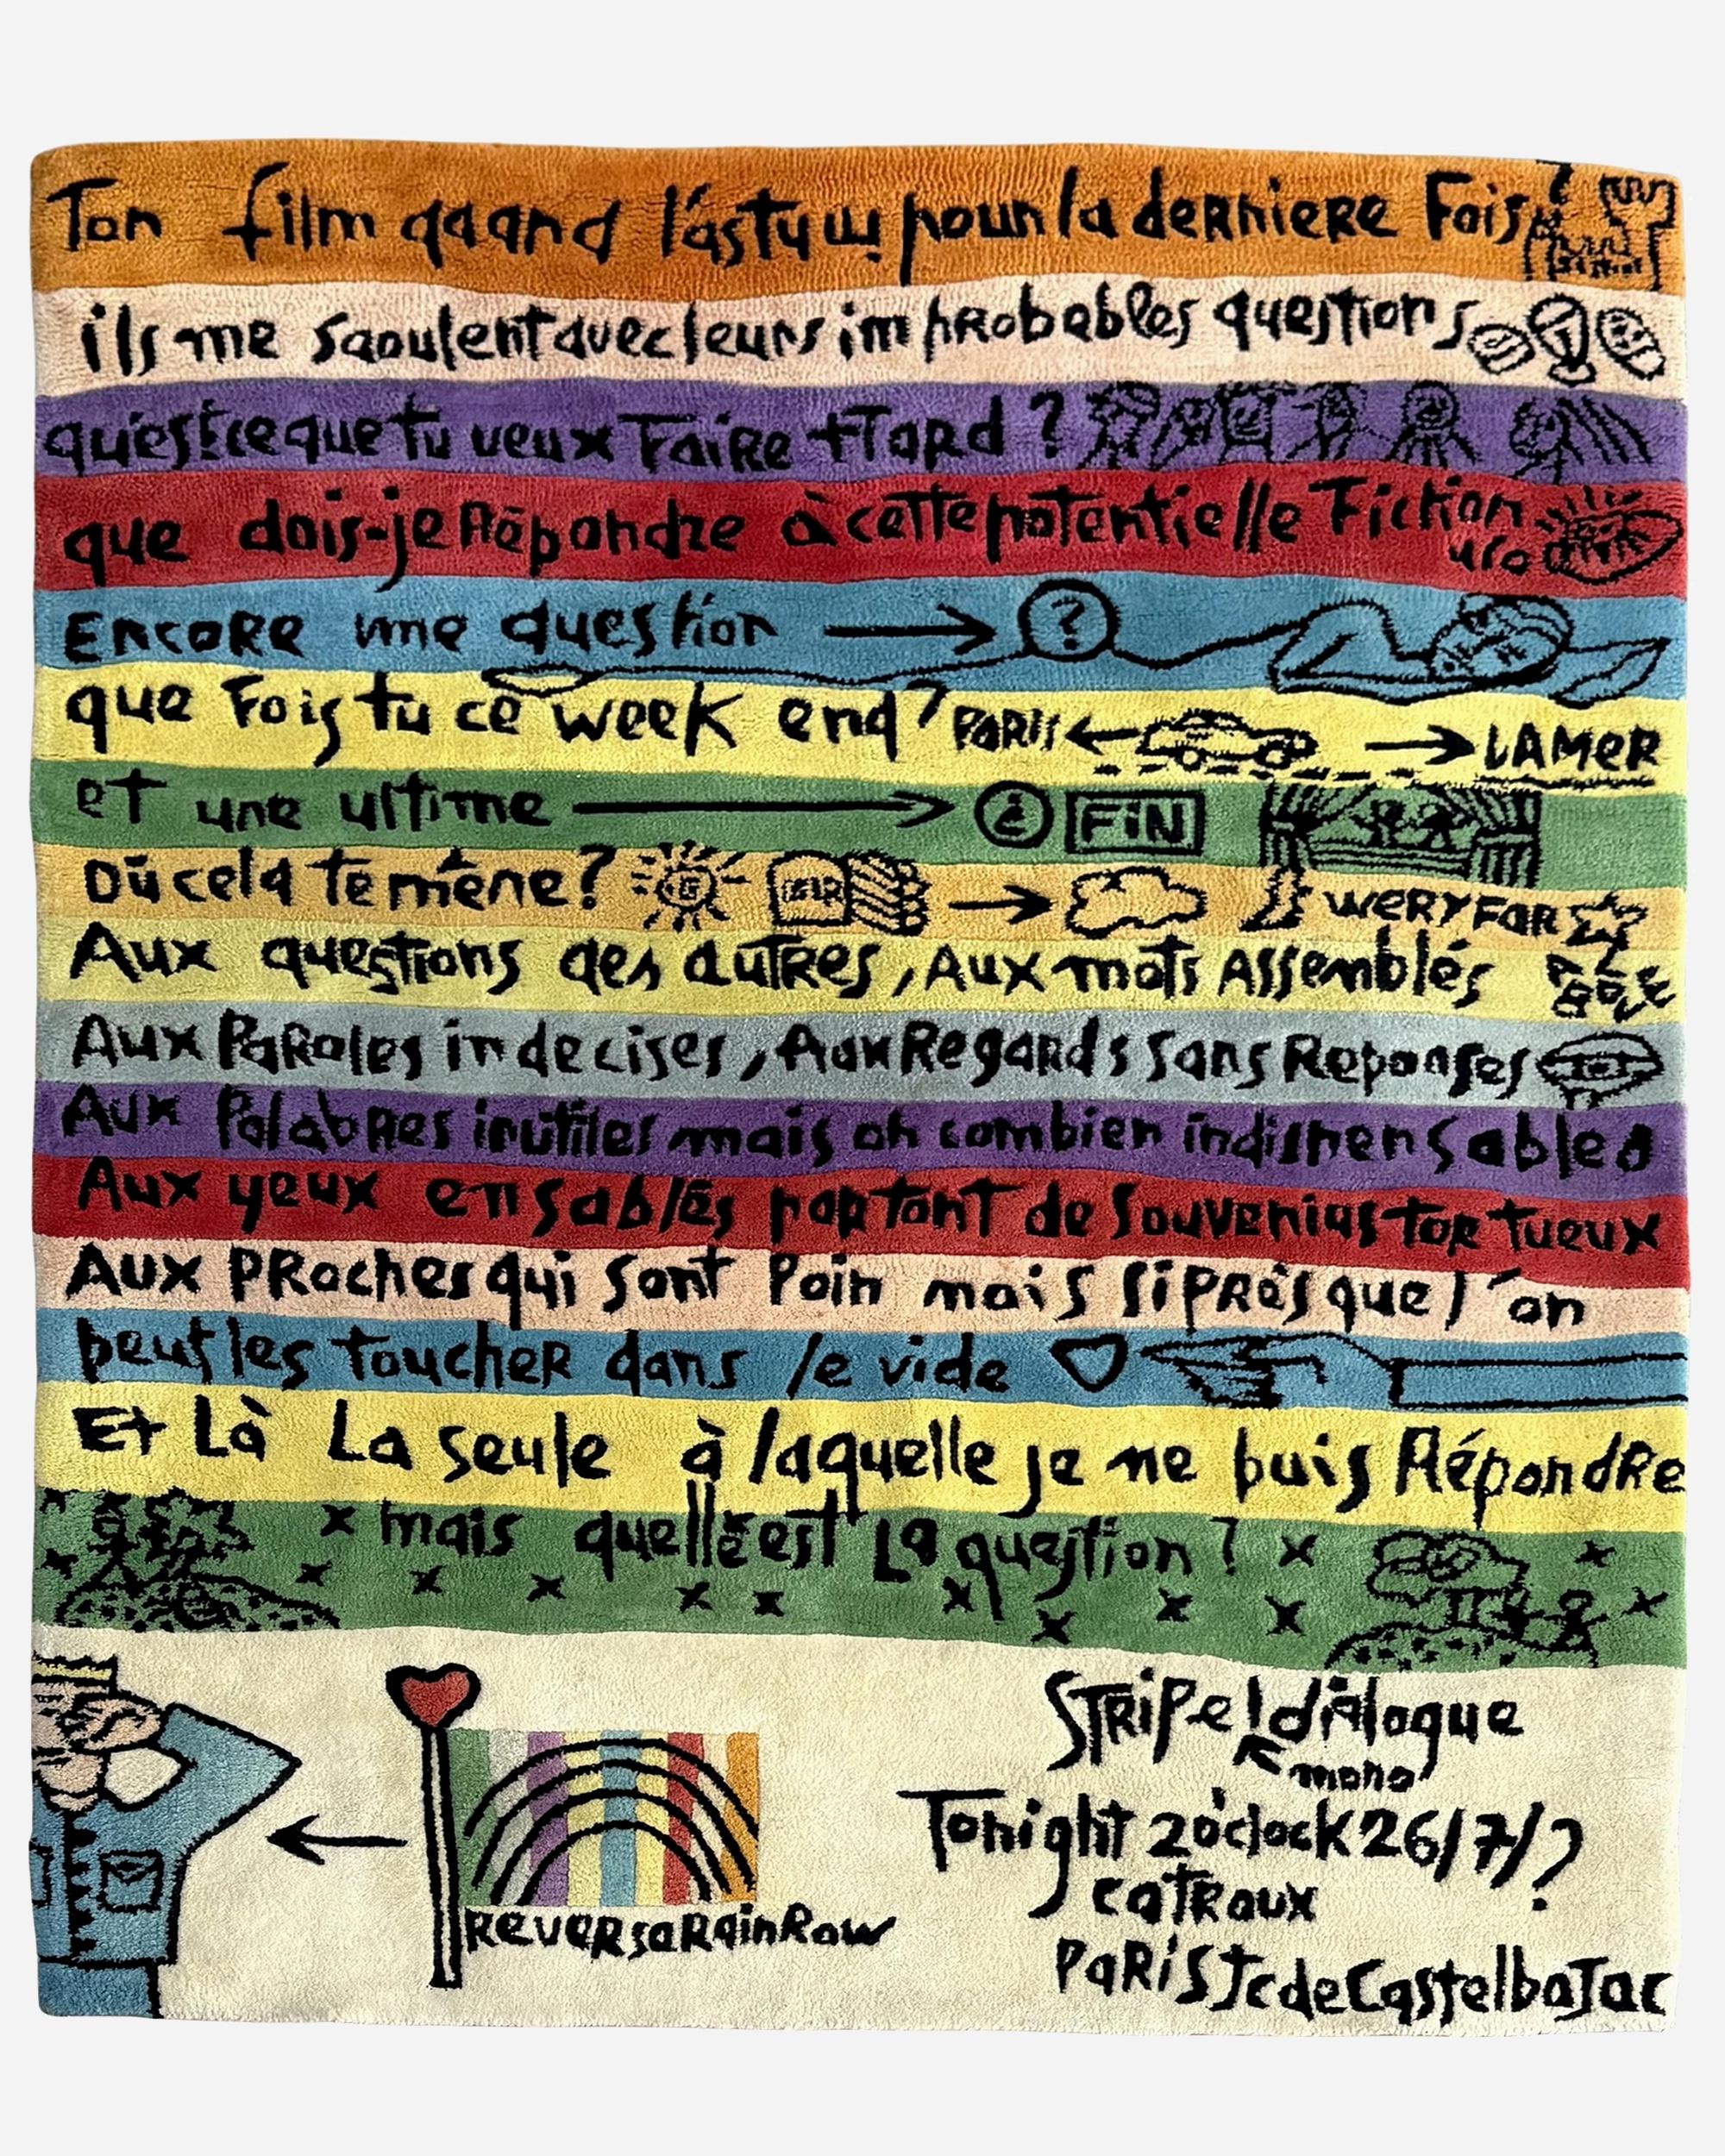 Ton film quand l'as tu vu pour la derniere Fois
ils me saoulent avec leurs improbables questions
qu'est ce que tu veux Faire + Tard ?
que dois-je Répondre à cette potentielle Fiction
uro
Encore une question → ?
que Fais tu ce week end ? PARIS ← → LAMER
et une ultime → ¿ FIN
Où cela te mène ? → WERY FAR
Aux questions des autres, Aux mots Assemblés
Aux Paroles indecises, Aux Regards sans Reponses
Aux Palabres inutiles mais oh combien indispensables
Aux yeux ensablés partant de souvenirs tortueux
Aux PRoches qui sont loin mais si près que l'on
peut les toucher dans le vide
Et Là La seule à laquelle je ne puis Répondre
mais quelle est La question ?
STRIPe! dialogue
mono
Tonight 2 o'clock 26/7/?
catraux
REVERSaRainRow
PARIS Jc de CastelbaJac